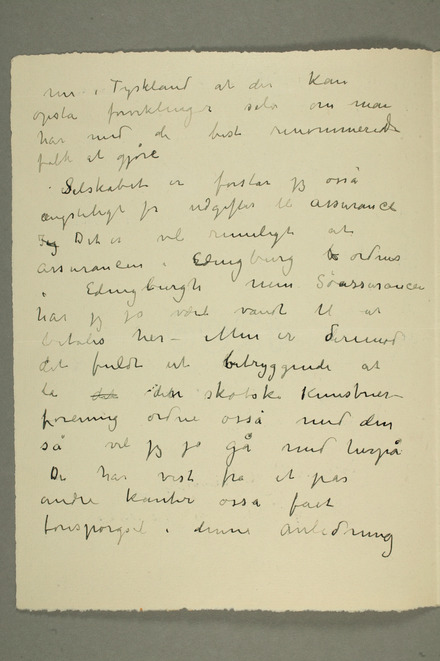 nu i Tyskland at der kan
opstå forviklinger selv om man
har med de best renommerede
folk at gjöre
Selskabet er forstår jeg også
ængsteligt for udgifter til assurance
Det er vel rimeligt at
assurancen i Edingburg ordnes
i Edingburgh men Söassurancen
har jeg jo vært vandt til at
betales her – Men er Dermed
det fuldt ut betryggende at
la den skotske Kunstner-
forening ordne også med den
så vil jeg jo gå med herpå
De har vist fra et par
andre kanter også fået
forespörgsel i denne anledning